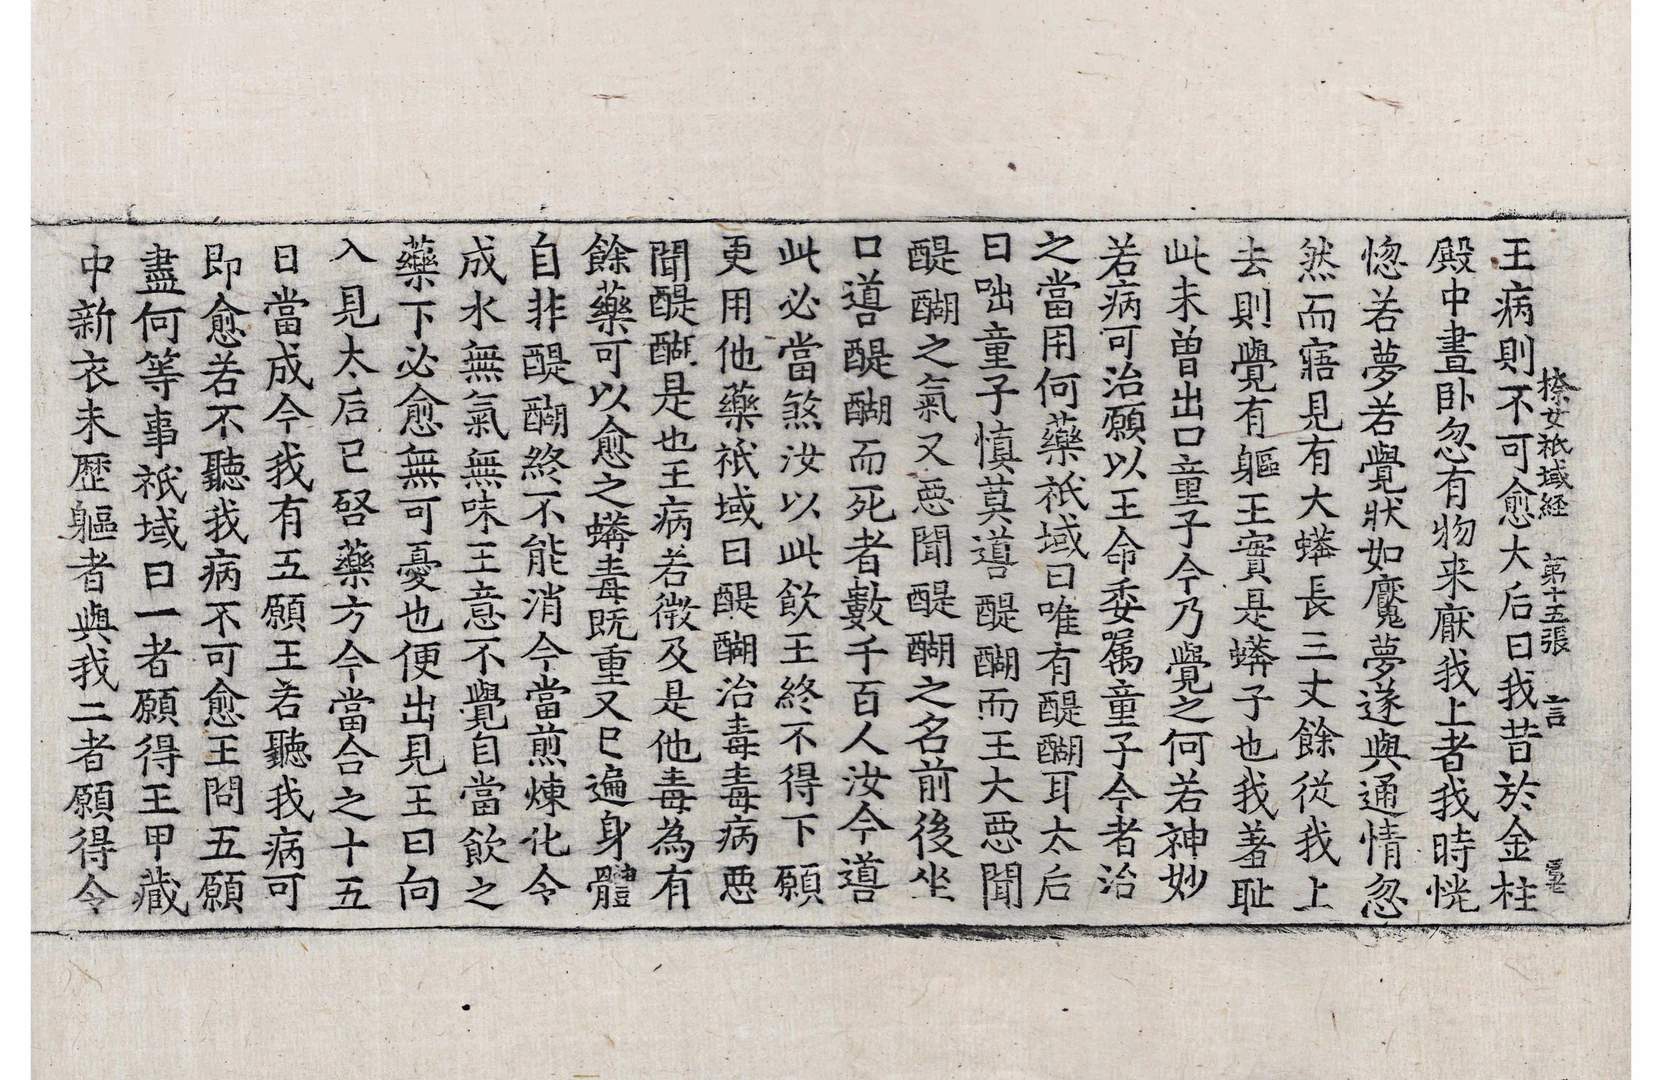 㮈女祇域経 第十五張 言
王病則不可愈大后曰我昔於金柱
殿中晝卧忽有物来厭我上者我時恍
惚若夢若覺狀如魘夢遂與通情忽
然而寤見有大蟒長三丈餘從我上
去則覺有軀王實是蟒子也我著耻
此未曽出口童子今乃覺之何若神妙
若病可治願以王命委嘱童子今者治
之當用何藥祇域曰唯有醍醐耳太后
曰咄童子慎莫噵醍醐而王大惡聞
醍醐之氣又惡聞醍醐之名前後坐
口噵醍醐而死者數千百人汝今噵
此必當煞汝以此飲王終不得下願
更用他藥祇域曰醍醐治毒毒病惡
聞醍醐是也王病若微及是他毒為有
餘藥可以愈之蟒毒既重又已遍身體
自非醍醐終不能消今當煎煉化令
成水無氣無味王意不覺自當飲之
藥下必愈無可憂也便出見王曰向
入見太后已啓藥方今當合之十五
日當成今我有五願王若聽我病可
即愈若不聽我病不可愈王問五願
盡何等事祇域曰一者願得王甲藏
中新衣未歷軀者與我二者願得令